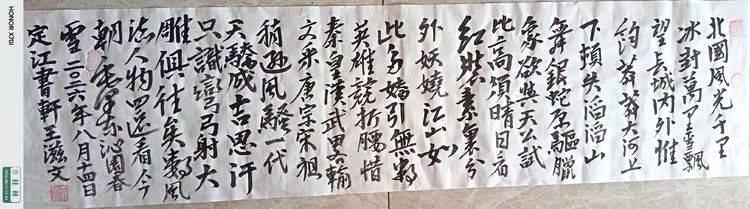 北國風光千里
冰封萬里雪飄
望長城內外惟
莽莽大河上
下頓失滔滔山
舞銀蛇原驅臘
象欲與天公試
比高須晴日看
紅裝素裹分
外妖嬈江山如
此多嬌引無數
英雄競折腰惜
秦皇漢武畧輸
文采唐宗宋祖
稍遜風騷一代
天驕成吉思汗
只識彎弓射大
雕俱往矣數風
流人物還看今
朝毛澤東沁園春
雪二〇二六年八月十四日
定江書軒王滋文
HONOR X70i
桂林